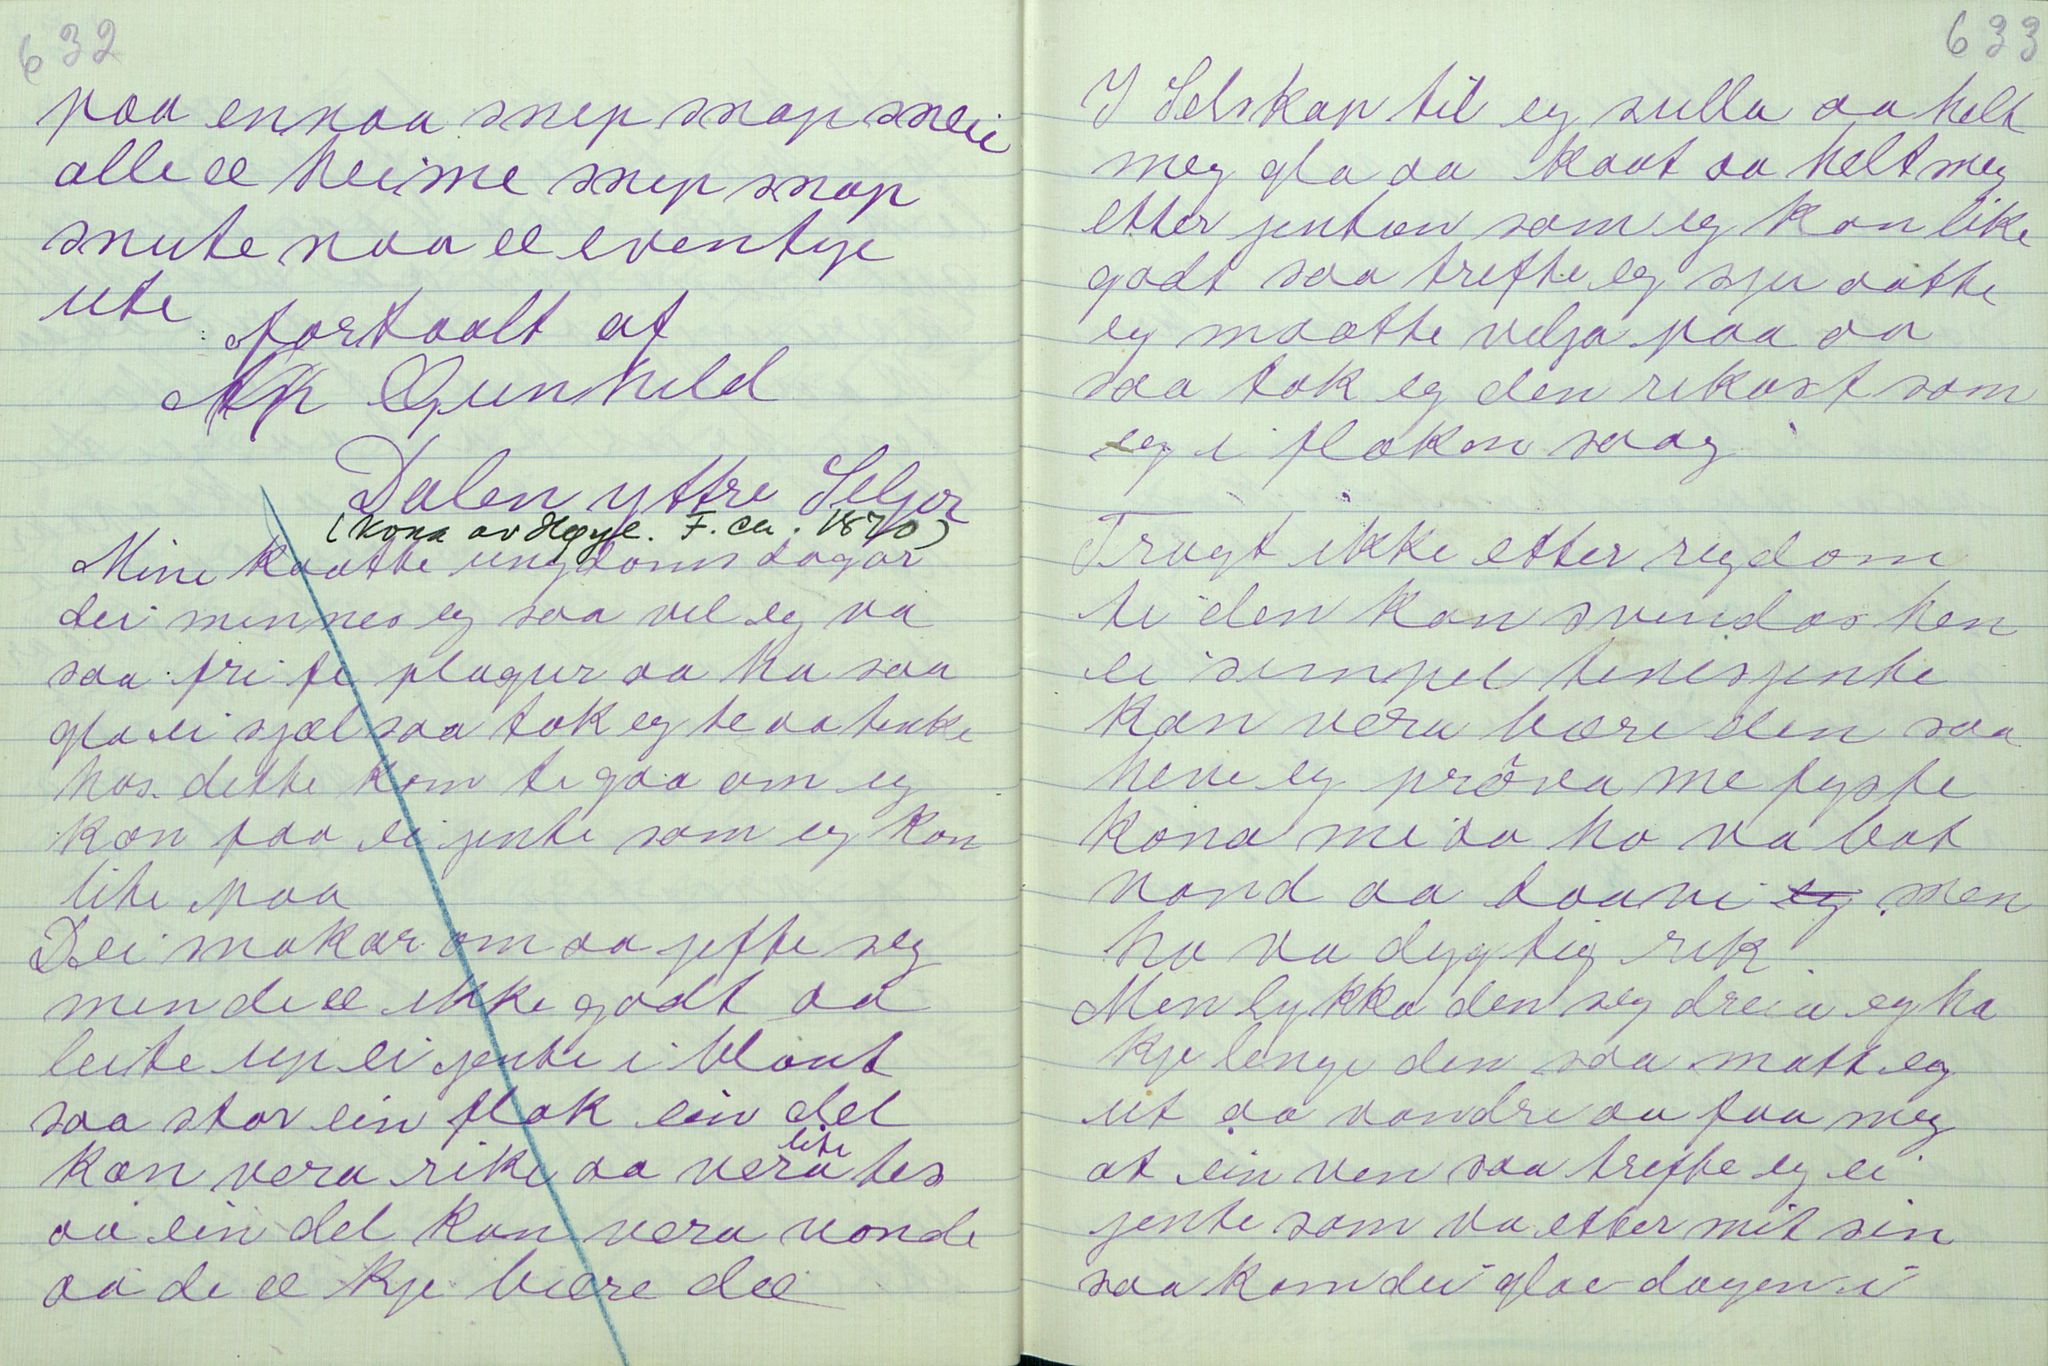 632
paa ennaa snip snap sneie
alle æ heime snip snap
snute naa æ eventye
ute
fortaalt af
Gunhild
Dalen yttre Seljor
(kona av Høye. F. ca. 1870)
Mine kaatte ungdoms dagar
dei minnes eg saa vel eg va
saa fri fe plagur aa ha saa
gla ei sjæl saa tok eg te aa tenke
hos dette kom te gaa om eg
kan faa ei jente som eg kan
lite paa
Dei makar om aa jefte seg
men de æ ikke godt aa
leite up ei jente i blant
saa stor ein flok ein del
lite
kan vera rike aa vera tes
aa ein del kan vera vonde
aa de æ kje bære dæ
633
I Selskap til eg sulla aa helt
meg gla aa kaat aa helt meg
etter jentæn som eg kan like
godt saa trefte eg sju aatte
eg maatte velja paa aa
saa tok eg den rikast som
eg i flokon saag
Tragt ikke etter rigdom
ti den kan svindas hen
ei simpel tenesjente
kan vera bære den saa
heve eg prøva me fyste
kona mi aa ho va bat
vond aa taani eg men
ho va dygtig rik
Men lykka den seg dreia eg ha
kje lenge den saa matt eg
ut aa vandre aa faa meg
at ein ven saa trefte eg ei
jente som va etter mit sin
saa kom dei glae dagen i